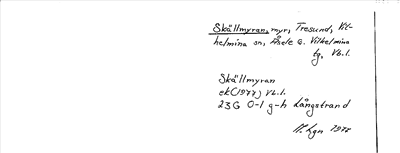 Skällmyran, myr, Tresund, Vil-
helmina sn, Åsele o. Vilhelmina
tg, Vb.l.
Skällmyran
ek (1977) Vb.l.
23G 0-1 g-h Långstrand
1978